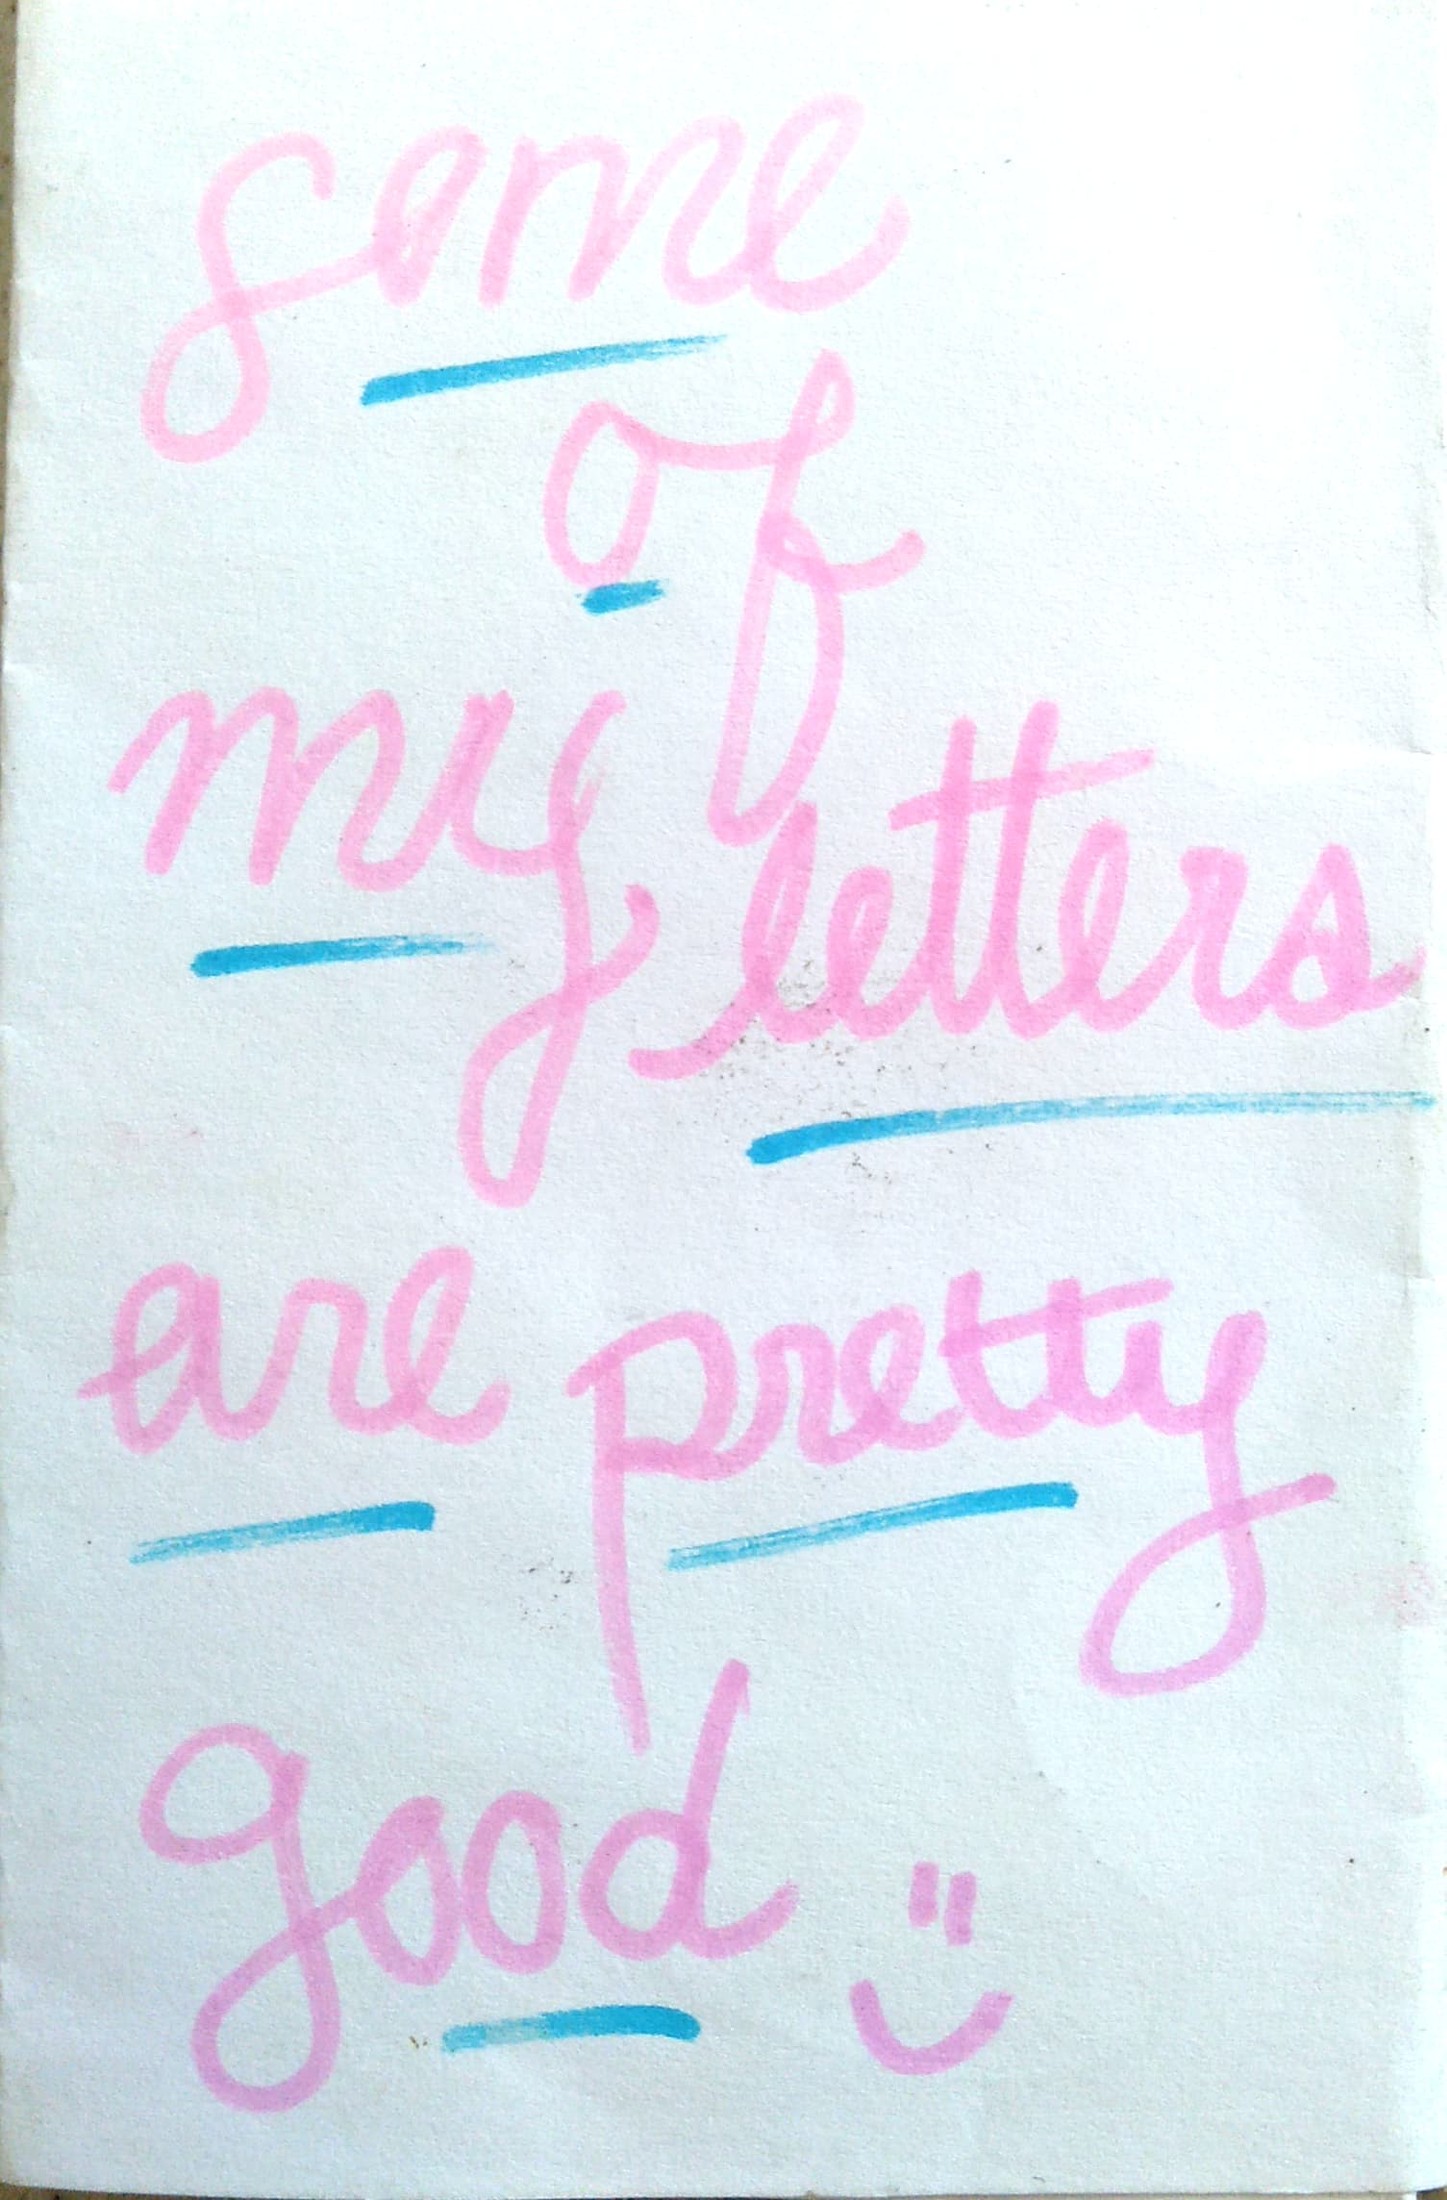 some
of
my letters
are pretty
good